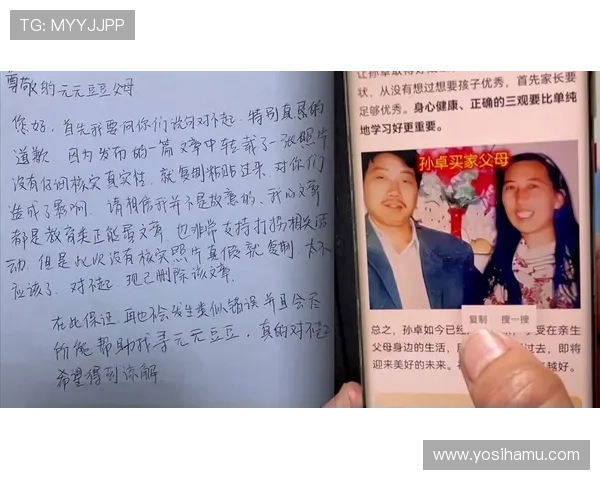 TG: MYYJJPP
尊敬的元元豆豆父母
您好，首先我要向你们说句对不起，特别真恳的
道歉，因为发布的一篇文章中转载了一张照片
没有仔细核实真实性，就复制粘贴过来，对你们
造成了影响，请相信我并不是故意的，我的文章
都是教育类正能量文章，也非常支持打拐相关活
动，但是此次没有核实照片真假就复制，太不
应该了，对不起，现已删除该文章。
在此保证，再也不会发生类似错误并且会尽
所能帮助找寻元元豆豆，真的对不起
希望得到谅解
让孙卓取得好成
状，从没有想过想要孩子优秀，首先家长要
足够优秀。身心健康、正确的三观要比单纯
地学习好更重要。
孙卓买家父母
复制 搜一搜
总之，孙卓如今已经 享受在亲生
父母身边的生活， 过去，即将
迎来美好的未来。 越好。
www.yosihamu.com